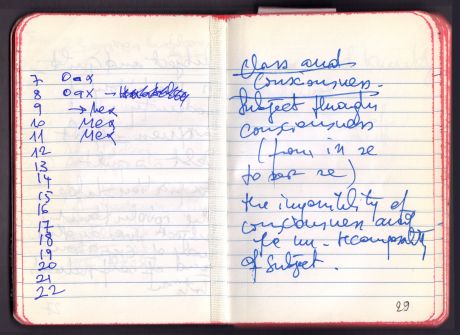 7 Oax
8 Oax →
9 → Mex
10 Mex
11 Mex
12
13
14
15
16
17
18
19
20
21
22
Class and
Consciousness.
Subject through
consciousness
(from in se
to per se)
the impossibility of
consciousness and
the un-
of Subject.
29